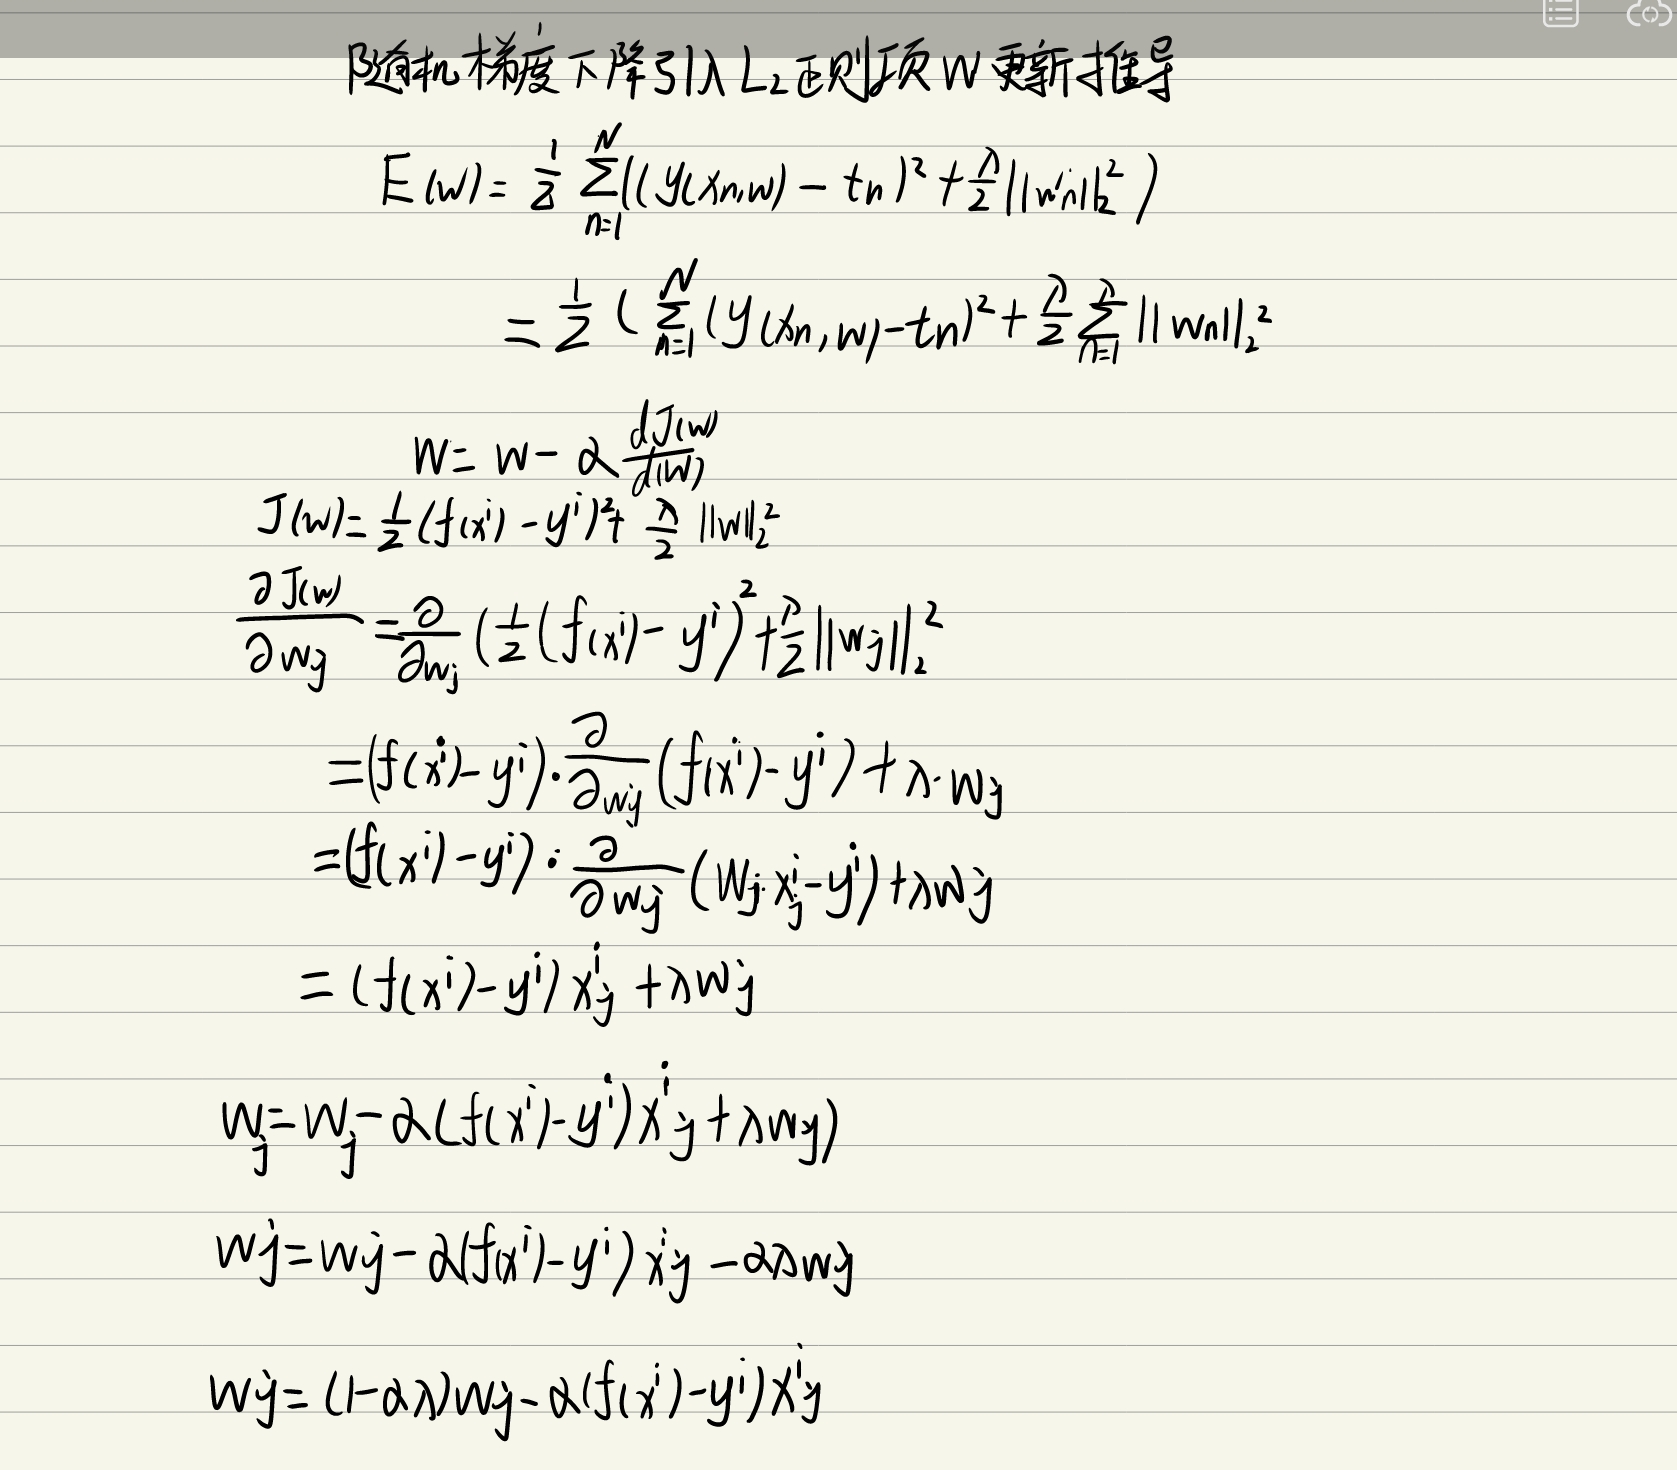 随机梯度下降引入L₂正则项W更新推导
E(w) = 1/2 Σ_{n=1}^{N} ((y(xn,w) - tn)² + λ/2 ||wn||₂²)
= 1/2 ( Σ_{n=1}^{N} (y(xn,w) - tn)² + λ/2 Σ_{n=1}^{λ} ||wn||₂²
W = w - α dJ(w)/d(w)
J(w) = 1/2 (f(xⁱ) - yⁱ)² + λ/2 ||w||₂²
∂J(w)/∂wj = ∂/∂wj (1/2 (f(xⁱ) - yⁱ)² + λ/2 ||wj||₂²
= (f(xⁱ) - yⁱ)·∂/∂wj (f(xⁱ) - yⁱ) + λ·wj
= (f(xⁱ) - yⁱ)·∂/∂wj (Wj·xⁱj - yⁱ) + λwj
= (f(xⁱ) - yⁱ) xⁱj + λwj
wj = wj - α(f(xⁱ) - yⁱ)xⁱj + λwj)
wj = wj - α(f(xⁱ) - yⁱ) xⁱj - αλwj
wj = (1-αλ)wj - α(f(xⁱ) - yⁱ)xⁱj